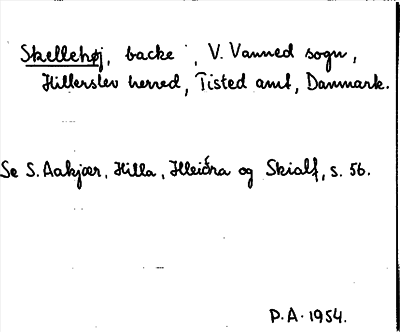 Skellehøj, backe, V. Vanned sogn,
Hillerslev herred, Tisted amt, Danmark.
Se S. Aakjær, Hilla, Hleiðra og Skialf, s. 56.
P.A. 1954.